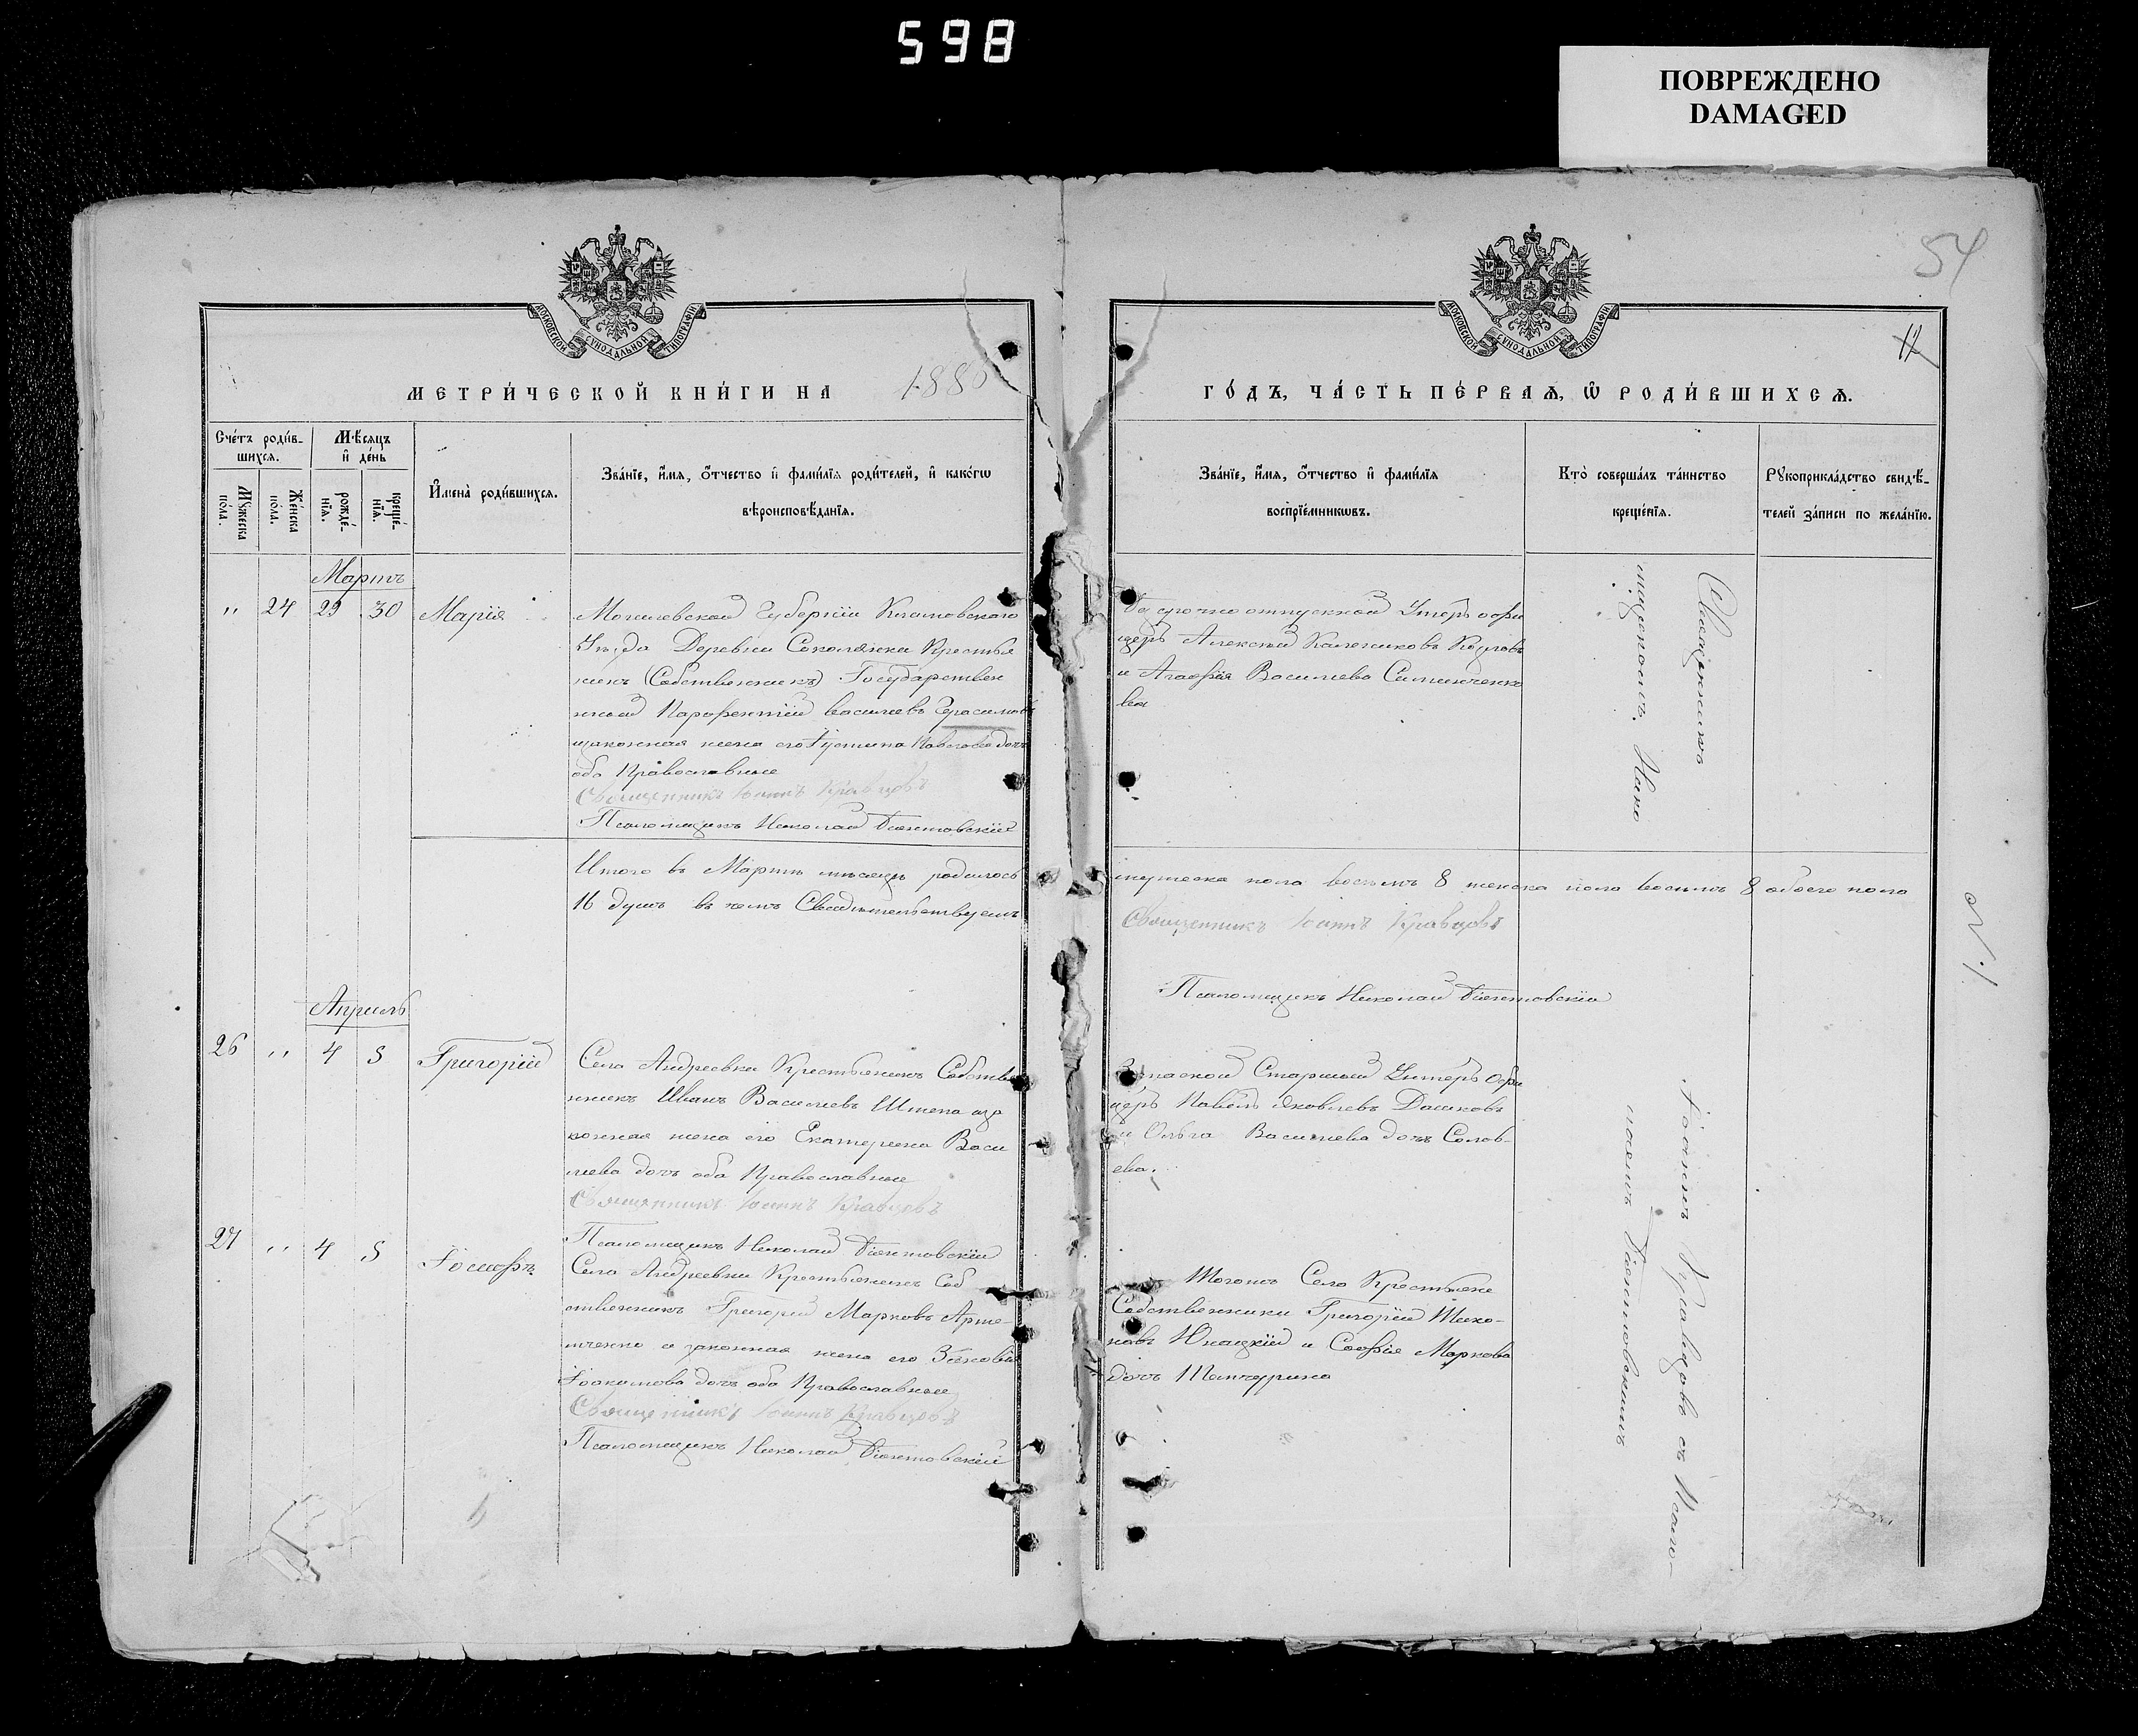 598
ПОВРЕЖДЕНО
DAMAGED
54
11
МОСКОВСКОЙ СѴНОДАЛЬНОЙ ТИПОГРАФІИ
МОСКОВСКОЙ СѴНОДАЛЬНОЙ ТИПОГРАФІИ
МЕТРИ́ЧЕСКОЙ КНИ́ГИ НА 188
ГО́ДЪ, ЧА́СТЬ ПЕ́РВАѦ, Ѡ РОДИ́ВШИХСѦ.
Сче́тъ роди́в-
шихсѧ.
Мѣ́сѧцъ
и де́нь
Мꙋ́жеска
по́ла.
Же́нска
по́ла.
рожде́-
нїѧ.
креще́-
нїѧ.
Имена̀ роди́вшихсѧ.
Зва́нїе, и́мѧ, о́тчество и фами́лїѧ роди́телей, и како́гѡ
вѣроисповѣ́данїѧ.
Зва́нїе, и́мѧ, о́тчество и фами́лїѧ
воспрїе́мникѡвъ.
Кто̀ соверша́лъ та́инство
креще́нїѧ.
Рꙋкоприкла́дство свидѣ́-
телей за́писи по жела́нїю.
Мартъ
" 24 29 30 Марія
Могилевской Губерніи Климовскаго
Уѣзда Деревни Соколянки Крестья
нинъ (Собственникъ) Государствен
нный Парфентій Васильевъ Герасимовъ
законная жена его Іустина Павлова дочь
оба Православные
Священникъ Іоаннъ Кравцовъ
Псаломщикъ Николай Діентовскій
Безсрочно отпускной Унтеръ офи
церъ Алексѣй Калениковъ Козловъ
и Агафія Василіева Симинченко
ва
Священникъ Іоаннъ Кравцовъ съ Псало-
мщикомъ Нико
лаемъ Діентовскимъ
Итого въ Мартѣ мѣсяцѣ родилось
16 душъ въ чемъ Свидѣтельствуемъ
мужеска пола восемь 8 женска пола восемь 8 обоего пола
Священникъ Іоаннъ Кравцовъ
Псаломщикъ Николай Діентовскій
№ 1
Апрѣль
26 " 4 5 Григорій
Села Андреевки Крестьянинъ Собстве
нникъ Иванъ Василіевъ Штепа иза
конная жена его Екатерина Васи
лиева дочь оба Православные
Священникъ Іоаннъ Кравцовъ
Псаломщикъ Николай Діентовскій
Запасной Старшый Унтеръ Офи
церъ Павелъ Яковлевъ Дашковъ
и Ольга Василиева дочь Солов-
ева.
27 " 4 5 Іосифъ
Села Андреевки Крестьянинъ Соб
ственникъ Григорій Марковъ Арте-
мченко и законная жена его Зѣновія
Іоакимова дочь оба Православные
Священникъ Іоаннъ Кравцовъ
Псаломщикъ Николай Діентовскій
Тогожъ Села Крестьяне
Собственники Григорій Тихо-
новъ Юнацкій и Софія Маркова
дочь